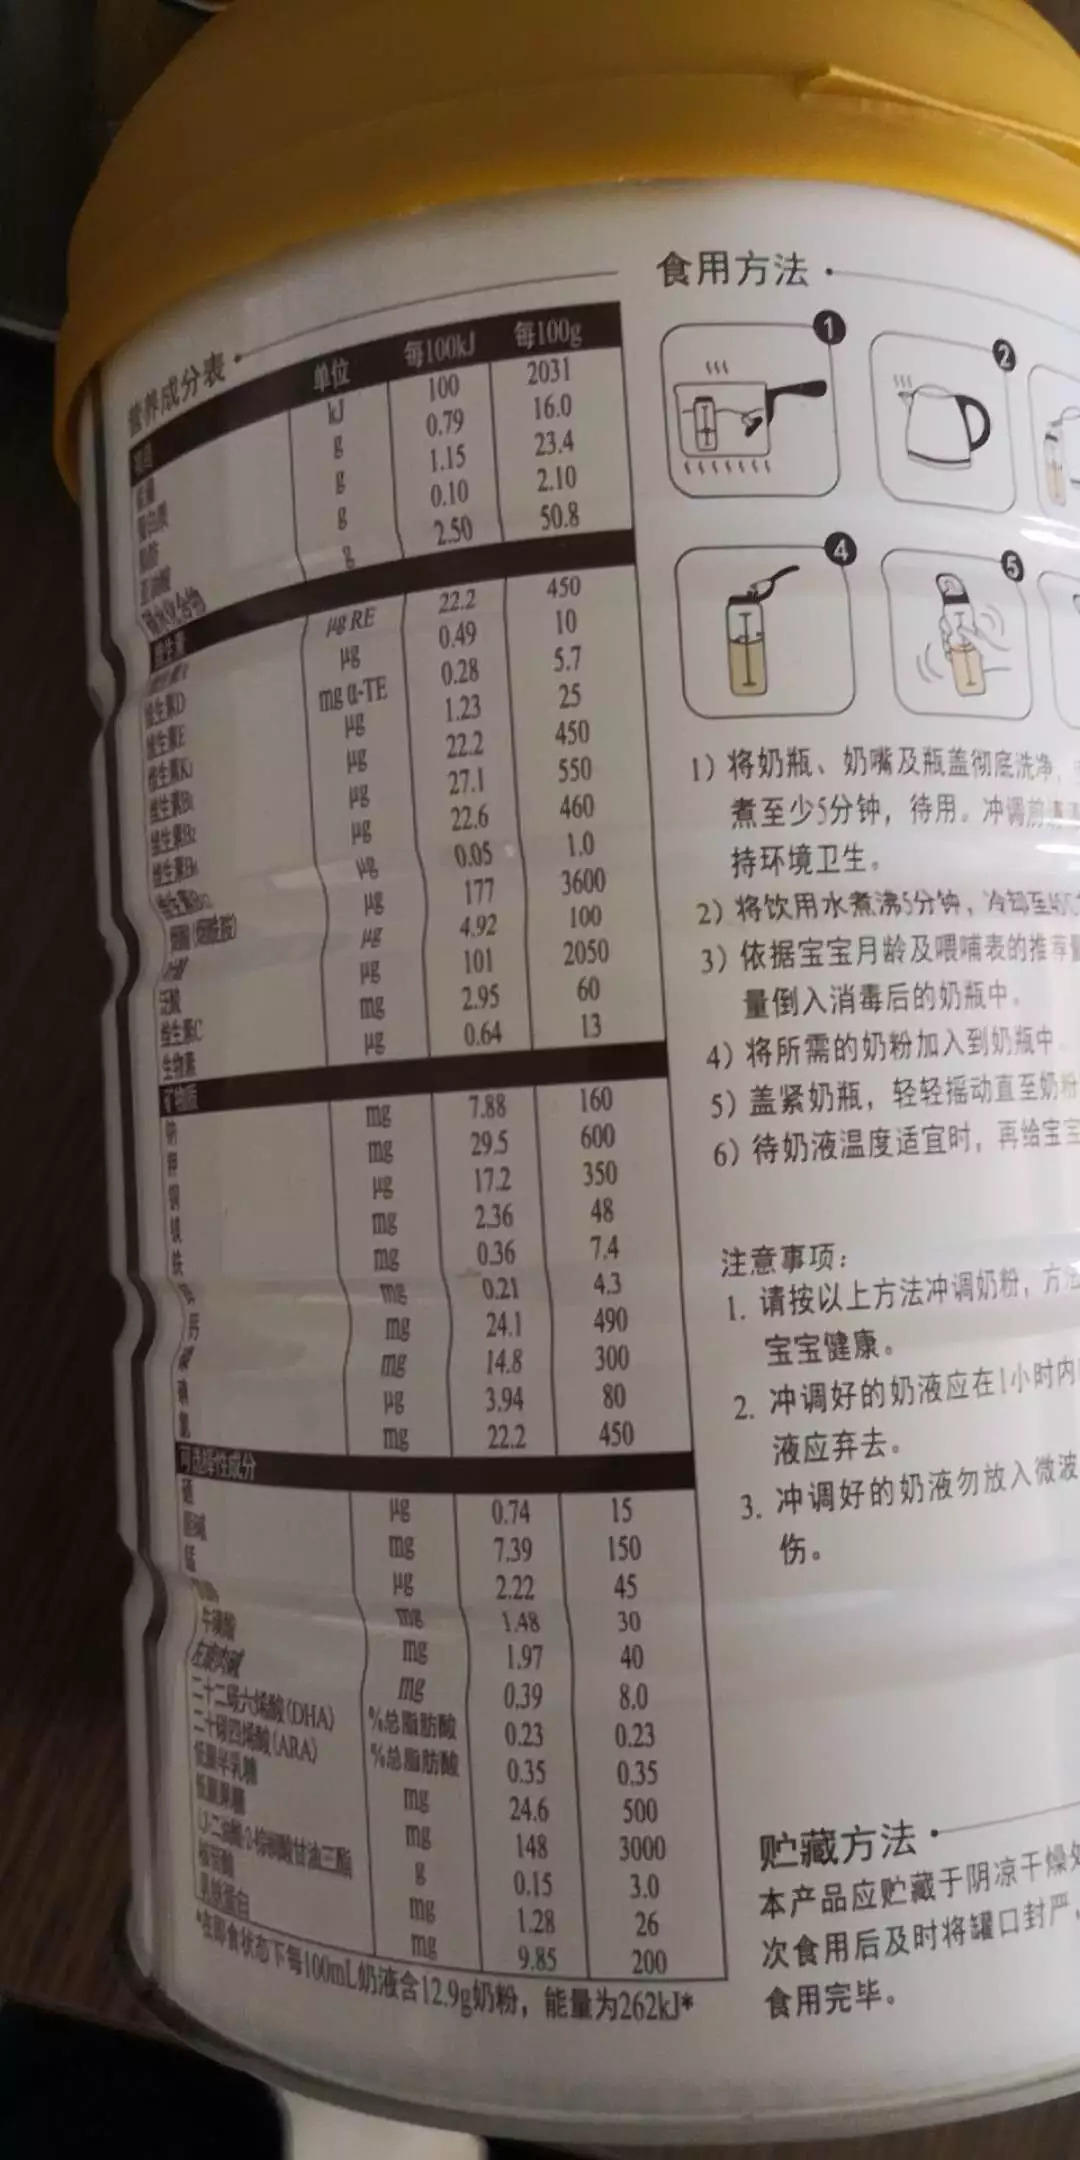 营养成分表
项目 单位 每100kJ 每100g
能量 kJ 100 2031
蛋白质 g 0.79 16.0
脂肪 g 1.15 23.4
亚油酸 g 0.10 2.10
碳水化合物 g 2.50 50.8
维生素
μg RE 22.2 450
维生素D μg 0.49 10
维生素E mg α-TE 0.28 5.7
维生素K₁ μg 1.23 25
维生素B₁ μg 22.2 450
维生素B₂ μg 27.1 550
维生素B₆ μg 22.6 460
维生素B₁₂ μg 0.05 1.0
烟酸(烟酰胺) μg 177 3600
叶酸 μg 4.92 100
泛酸 μg 101 2050
维生素C mg 2.95 60
生物素 μg 0.64 13
矿物质
钠 mg 7.88 160
钾 mg 29.5 600
铜 μg 17.2 350
镁 mg 2.36 48
铁 mg 0.36 7.4
mg 0.21 4.3
钙 mg 24.1 490
磷 mg 14.8 300
碘 μg 3.94 80
氯 mg 22.2 450
可选择性成分
硒 μg 0.74 15
胆碱 mg 7.39 150
锰 μg 2.22 45
mg 1.48 30
牛磺酸 mg 1.97 40
左旋肉碱 mg 0.39 8.0
二十二碳六烯酸(DHA) %总脂肪酸 0.23 0.23
二十碳四烯酸(ARA) %总脂肪酸 0.35 0.35
低聚半乳糖 mg 24.6 500
低聚果糖 mg 148 3000
1,3-二油酸-2-棕榈酸甘油三酯 g 0.15 3.0
核苷酸 mg 1.28 26
乳铁蛋白 mg 9.85 200
*在即食状态下每100mL奶液含12.9g奶粉，能量为262kJ*
食用方法
1
2
4
5
1）将奶瓶、奶嘴及瓶盖彻底洗净，
煮至少5分钟，待用。冲调前
持环境卫生。
2）将饮用水煮沸5分钟，冷却至
3）依据宝宝月龄及喂哺表的推荐
量倒入消毒后的奶瓶中。
4）将所需的奶粉加入到奶瓶中
5）盖紧奶瓶，轻轻摇动直至奶粉
6）待奶液温度适宜时，再给宝宝
注意事项：
1. 请按以上方法冲调奶粉，方法
宝宝健康。
2. 冲调好的奶液应在1小时内
液应弃去。
3. 冲调好的奶液勿放入微波
伤。
贮藏方法
本产品应贮藏于阴凉干燥处
次食用后及时将罐口封严，
食用完毕。